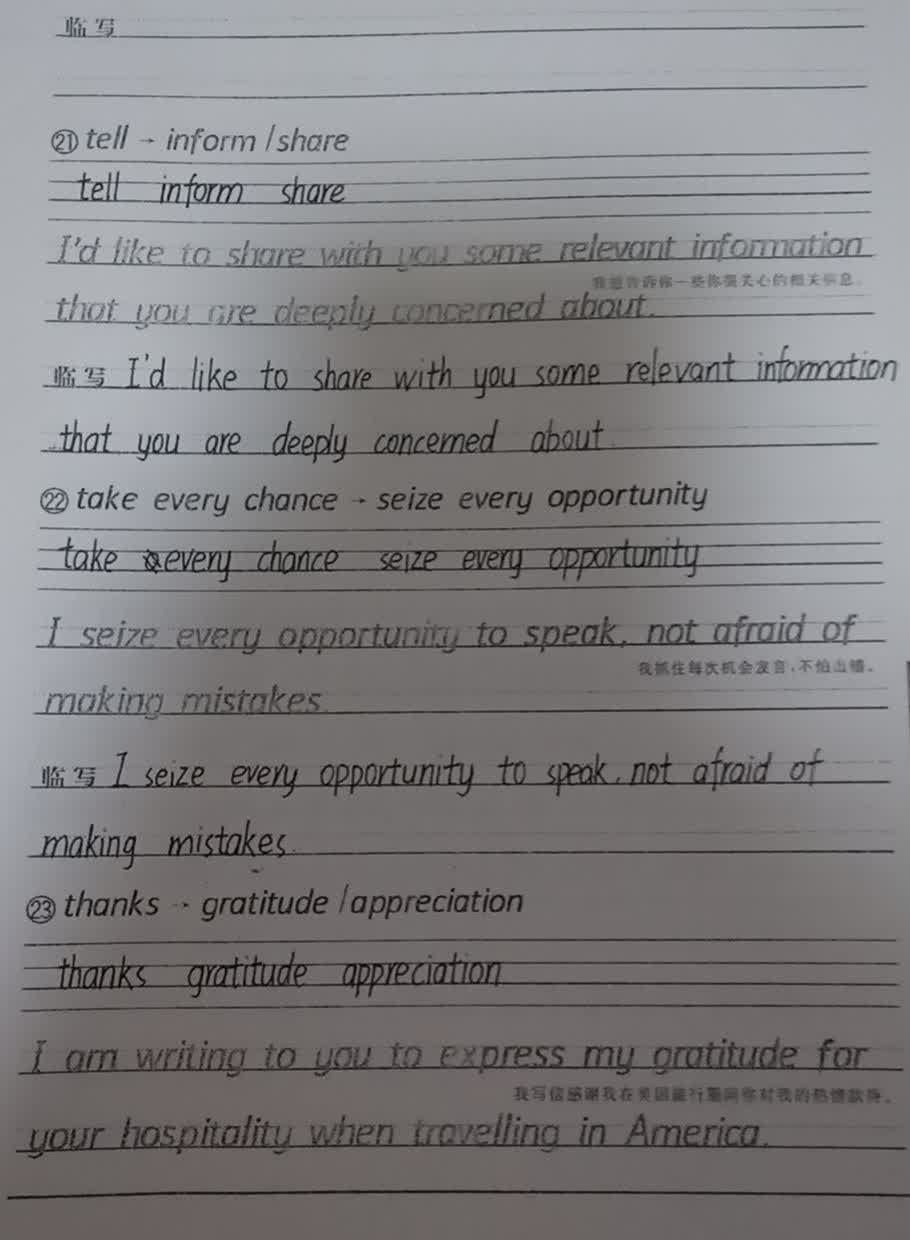 临写
㉑ tell → inform / share
tell inform share
I'd like to share with you some relevant information
我想告诉你一些你很关心的相关信息。
that you are deeply concerned about.
临写 I'd like to share with you some relevant information
that you are deeply concerned about
㉒ take every chance → seize every opportunity
take every chance seize every opportunity
I seize every opportunity to speak, not afraid of
我抓住每次机会发言，不怕出错。
making mistakes.
临写 I seize every opportunity to speak, not afraid of
making mistakes.
㉓ thanks → gratitude / appreciation
thanks gratitude appreciation
I am writing to you to express my gratitude for
我写信感谢我在美国旅行期间你对我的热情款待。
your hospitality when travelling in America.